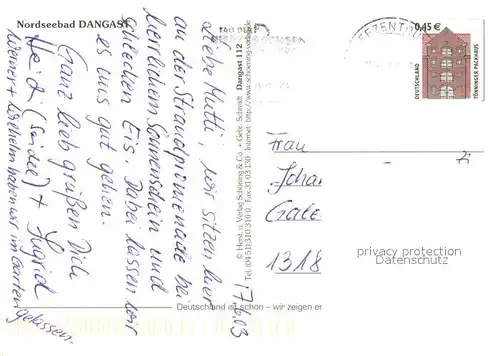 Nordseebad DANGAST
17.6.03
Liebe Mutti, wir sitzen hier
an der Strandpromenade bei
herrlichem Sonnenschein und
schlecken Eis. Dabei lassen wir
es uns gut gehen.
Ganz lieb grüßen Dich
Heidi + Ingrid
Werner + Wilhelm haben wir im Garten
gelassen.
© Herst. u. Verlag Schöning & Co. + Gebr. Schmidt Dangast 112
Tel. (0451) 310 310 Fax 31 03 130 Internet: http://www.schoening-verlag.de
BRIEFZENTR
0,45 €
DEUTSCHLAND
TÖNNINGER PACKHAUS
Frau
1318
privacy protection
Datenschutz
Deutschland ist schön – wir zeigen es